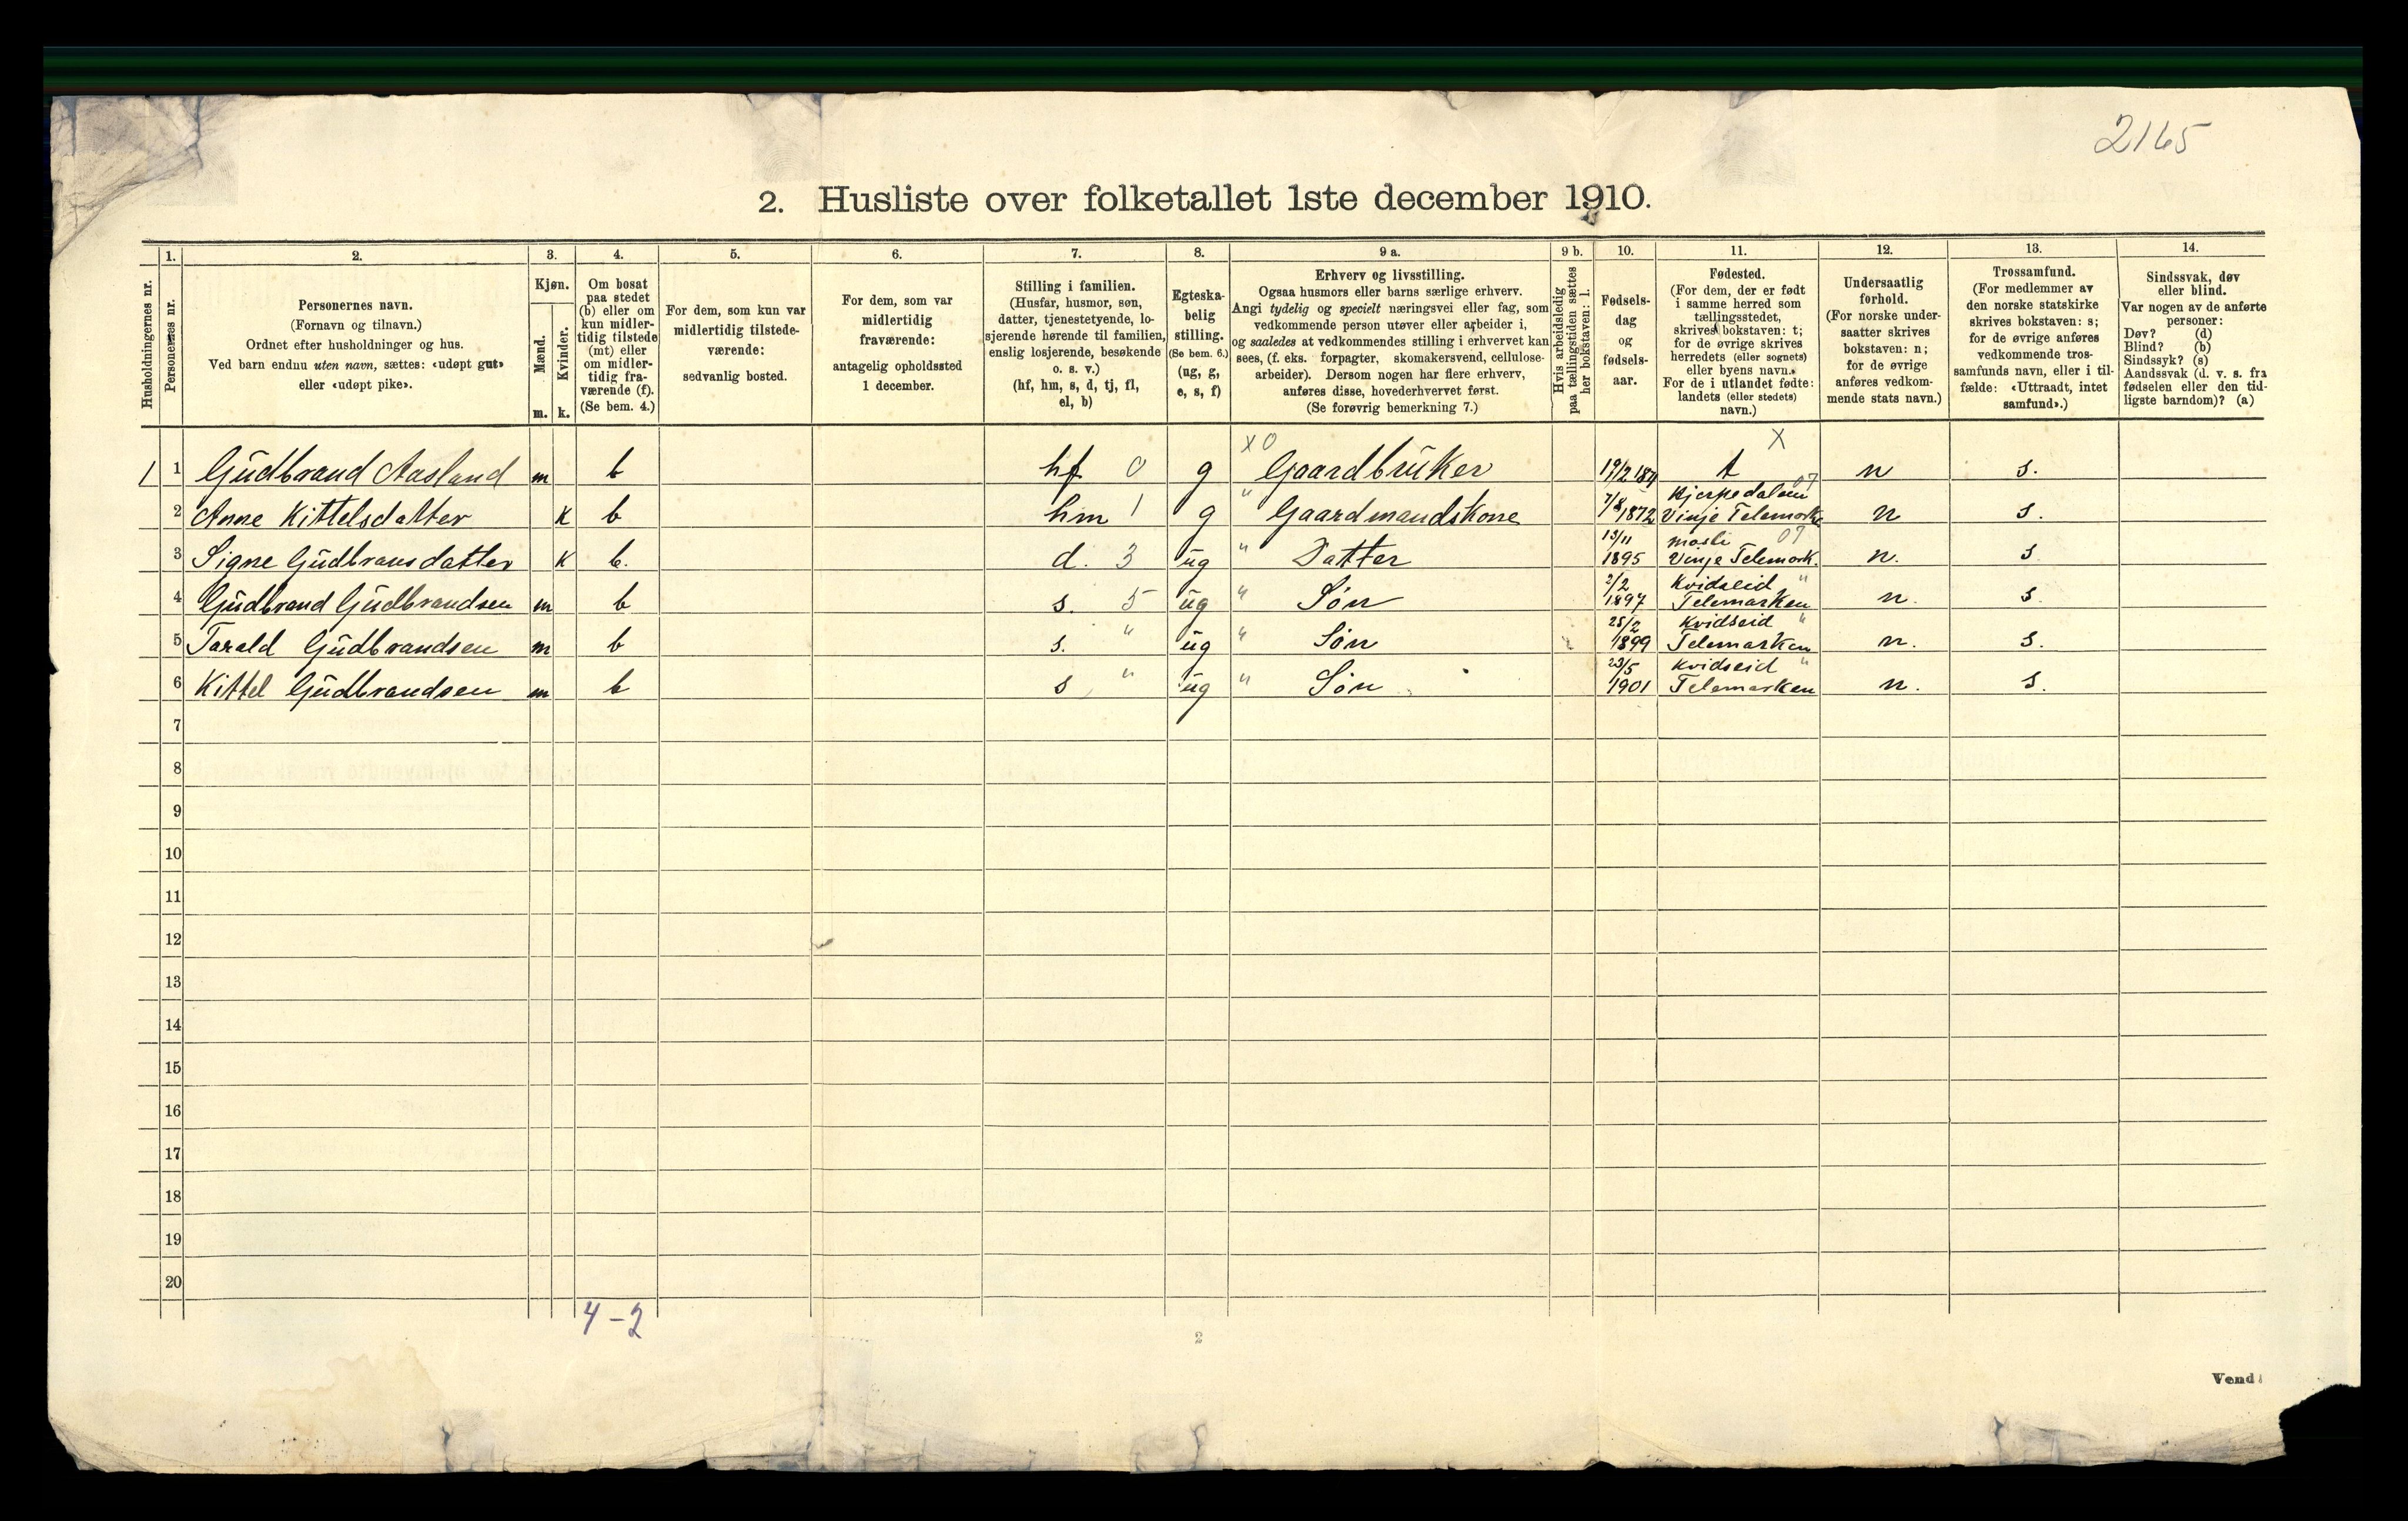 2165
2. Husliste over folketallet 1ste december 1910.
Husholdningernes nr.
1.
Personernes nr.
2.
Personernes navn.
(Fornavn og tilnavn.)
Ordnet efter husholdninger og hus.
Ved barn endnu uten navn, sættes: «udøpt gut»
eller «udøpt pike».
3.
Kjøn.
Mænd.
m.
Kvinder.
k.
4.
Om bosat
paa stedet
(b) eller om
kun midler-
tidig tilstede
(mt) eller
om midler-
tidig fra-
værende (f).
(Se bem. 4.)
5.
For dem, som kun var
midlertidig tilstede-
værende:
sedvanlig bosted.
6.
For dem, som var
midlertidig
fraværende:
antagelig opholdssted
1 december.
7.
Stilling i familien.
(Husfar, husmor, søn,
datter, tjenestetyende, lo-
sjerende hørende til familien,
enslig losjerende, besøkende
o. s. v.)
(hf, hm, s, d, tj, fl,
el, b)
8.
Egteska-
belig
stilling.
(Se bem. 6.)
(ug, g,
e, s, f)
9 a.
Erhverv og livsstilling.
Ogsaa husmors eller barns særlige erhverv.
Angi tydelig og specielt næringsvei eller fag, som
vedkommende person utøver eller arbeider i,
og saaledes at vedkommendes stilling i erhvervet kan
sees, (f. eks. forpagter, skomakersvend, cellulose-
arbeider). Dersom nogen har flere erhverv,
anføres disse, hovederhvervet først.
(Se forøvrig bemerkning 7.)
9 b.
Hvis arbeidsledig
paa tællingstiden sættes
her bokstaven: l.
10.
Fødsels-
dag
og
fødsels-
aar.
11.
Fødested.
(For dem, der er født
i samme herred som
tællingsstedet,
skrives bokstaven: t;
for de øvrige skrives
herredets (eller sognets)
eller byens navn.
For de i utlandet fødte:
landets (eller stedets)
navn.)
12.
Undersaatlig
forhold.
(For norske under-
saatter skrives
bokstaven: n;
for de øvrige
anføres vedkom-
mende stats navn.)
13.
Trossamfund.
(For medlemmer av
den norske statskirke
skrives bokstaven: s;
for de øvrige anføres
vedkommende tros-
samfunds navn, eller i til-
fælde: «Uttraadt, intet
samfund».)
14.
Sindssvak, døv
eller blind.
Var nogen av de anførte
personer:
Døv? (d)
Blind? (b)
Sindssyk? (s)
Aandssvak (d. v. s. fra
fødselen eller den tid-
ligste barndom)? (a)
x0 x
1 1 Gudbrand Aasland m b hf 0 g Gaardbruker 19/2 1871 t n s.
07
Kjerpedalen
2 Anne Kittelsdatter k b hm 1 g " Gaardmandskone 7/8 1872 Vinje Telemarke n s.
13/11 mosli 07
3 Signe Gudbransdatter k b. d. 3 ug " Datter 1895 Vinje Telemark. n. s
2/2 Kvidseid "
4 Gudbrand Gudbrandsen m b s. 5 ug " Søn 1897 Telemarken n. s.
25/2 Kvidseid "
5 Tarald Gudbrandsen m b s. " ug " Søn 1899 Telemarken n. s.
23/5 Kvidseid "
6 Kittel Gudbrandsen m b s " ug " Søn 1901 Telemarken n. s.
7
8
9
10
11
12
13
14
15
16
17
18
19
20
4-2
2
Vend!